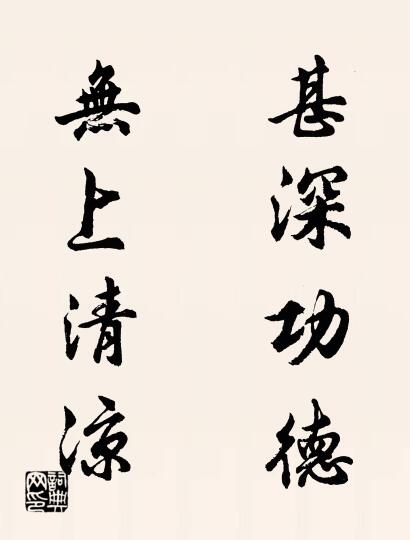 甚深功德
無上清涼
詞典
网